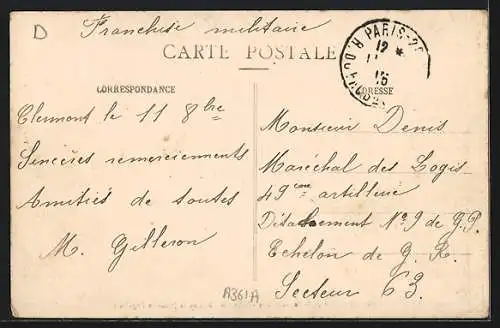 D
Franchise militaire
CARTE POSTALE
PARIS-
12
15
CORRESPONDANCE
ADRESSE
Clermont le 11 8bre
Sincères remerciements
Amitiés de toutes
M. Gelleron
Monsieur Denis
Maréchal des Logis
49eme artillerie
Détachement No 9 de G.P.
Echelon de G. R.
Secteur 63.
A361A